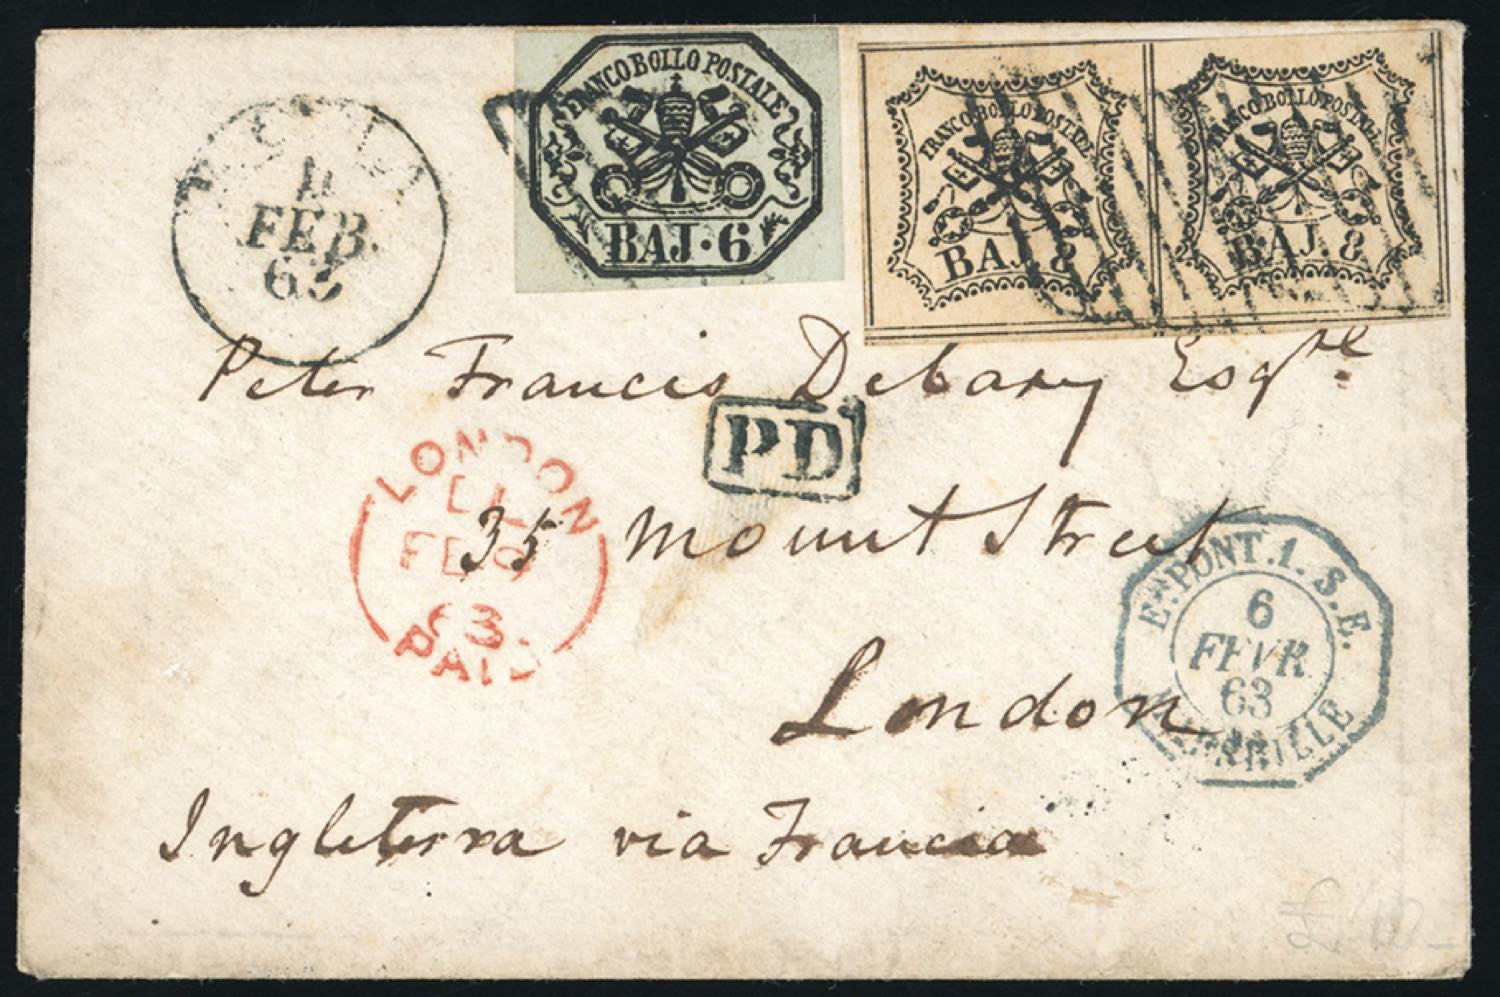 FRANCO BOLLO POSTALE
BAJ·6
FRANCO BOLLO POSTALE
BAJ. 8
FRANCO BOLLO POSTALE
BAJ. 8
FEB.
Peter Francis Debary Esqre
PD
LONDON
FE 9
63
PAID
35 Mount Street
Et. PONT. 1. S. E.
6
FEVR
63
MARSEILLE
London
Ingleterra via Francia